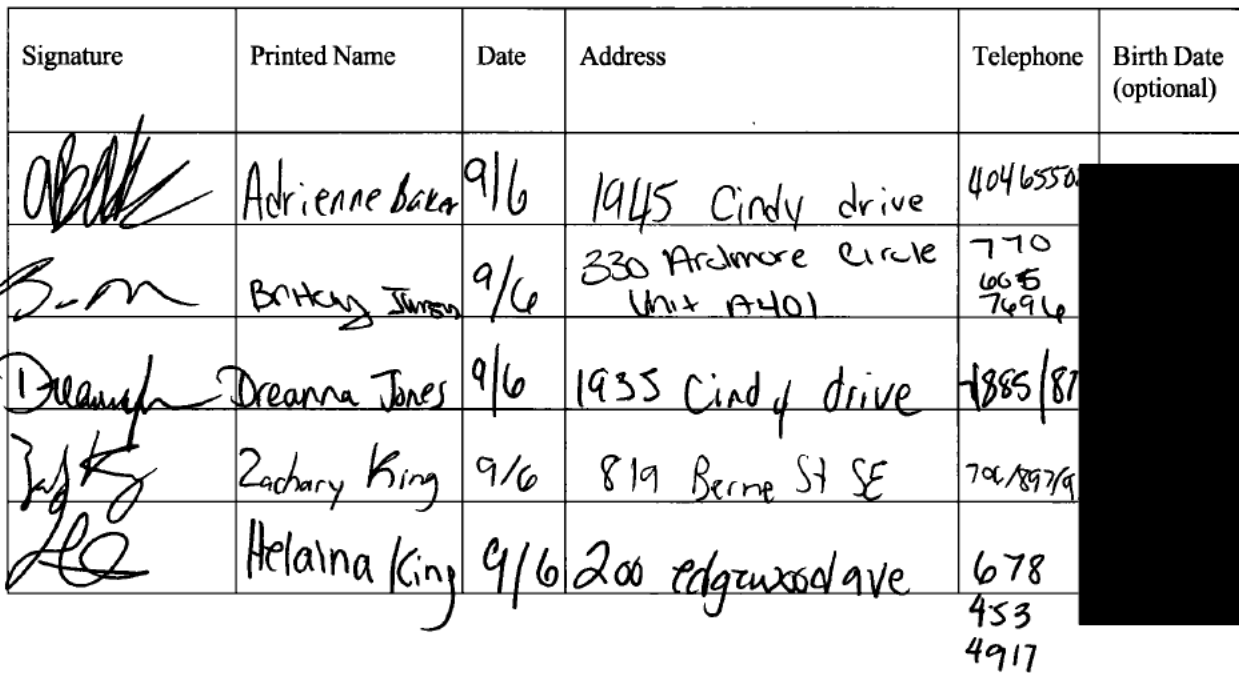 Signature Printed Name Date Address Telephone Birth Date
(optional)
Adrienne Baker 9/6 1945 Cindy drive 404655
330 Ardmore Circle 770
9/6 Unit A401
7696
Dreanna Jones 9/6 1935 Cindy drive 1885/87
Zachary King 9/6 819 Berne St SE
Helaina King 9/6 200 edgewood ave 678
453
4917